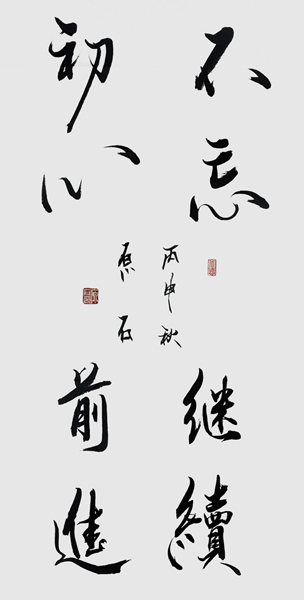 不忘
初心
继續
前進
丙申秋
石